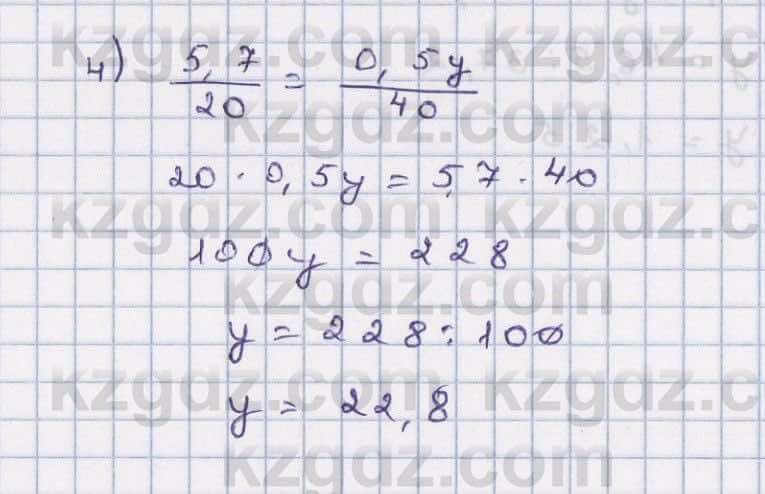 4) 5,7/20 = 0,5y/40
20 · 0,5y = 5,7 · 40
100y = 228
y = 228 : 100
y = 22,8
kzgdz.com kzgdz.com
kzgdz.com
kzgdz.com kzgdz.com
kzgdz.com
kzgdz.com kzgdz.com
kzgdz.com